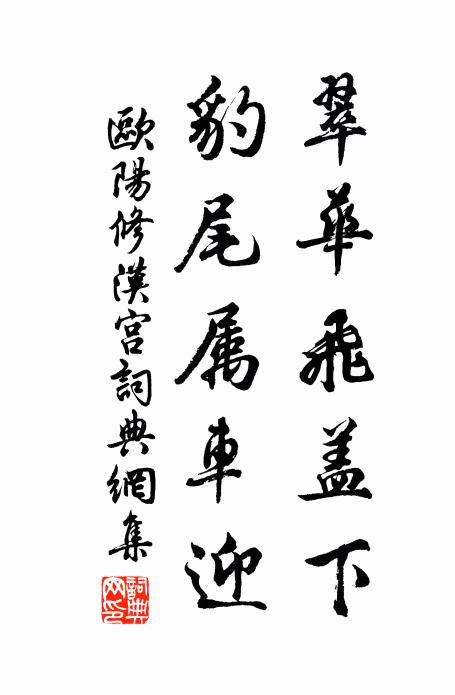 翠華飛盖下
豹尾属車迎
歐陽修漢宮詞典網集
詞典网印